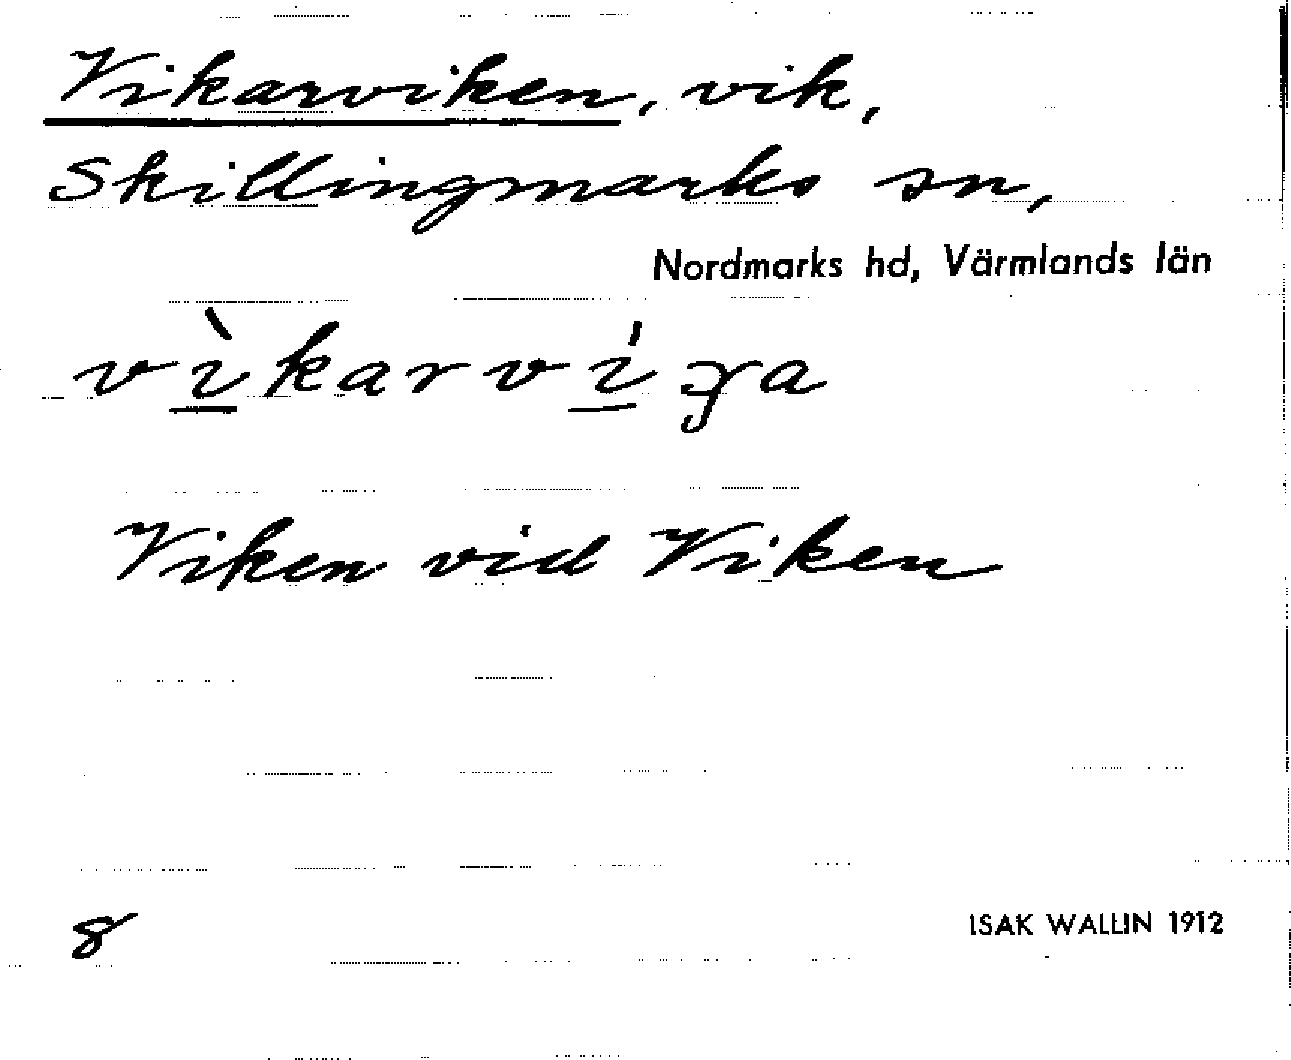 Vikarviken, vik,
Skillingmarks sn,
Nordmarks hd, Värmlands län
Viken vid Viken
8
ISAK WALLIN 1912